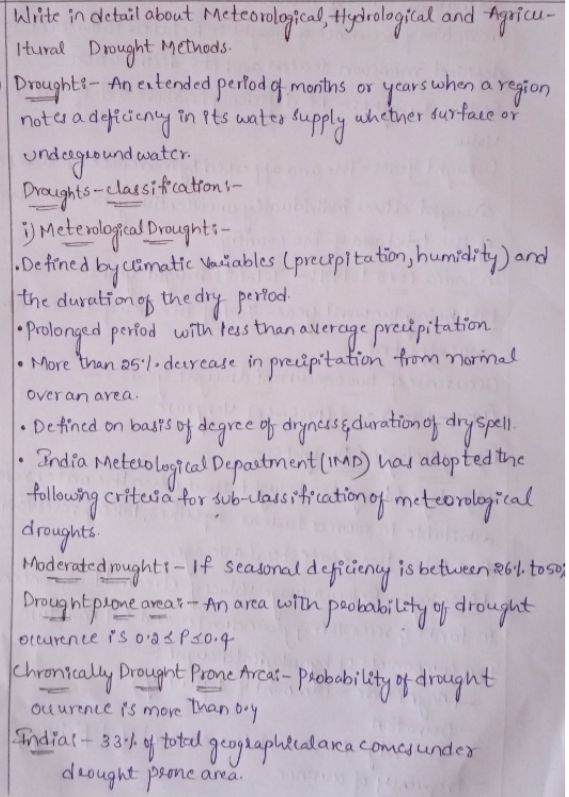 Write in detail about Meteorological, Hydrological and Agricu-
ltural Drought Methods.
Drought:- An extended period of months or years when a region
notes a deficieny in its water supply whether surface or
undergroundwater.
Droughts-classification:-
i) Meterological Drought:-
• Defined by climatic variables (precipitation, humidity) and
the duration of the dry period.
• Prolonged period with less than average precipitation
• More than 25% decrease in precipitation from normal
over an area.
• Defined on basis of degree of dryness & duration of dry spell.
• India Meterological Department (IMD) has adopted the
following criteria for sub-classification of meteorological
droughts.
Moderate drought:- If seasonal deficieny is between 26% to 50%
Drought prone area:- An area with probability of drought
occurence is 0.2 ≤ P ≤ 0.4
Chronically Drought Prone Area:- Probability of drought
occurence is more than 0.4
India:- 33% of total geographical area comes under
drought prone area.